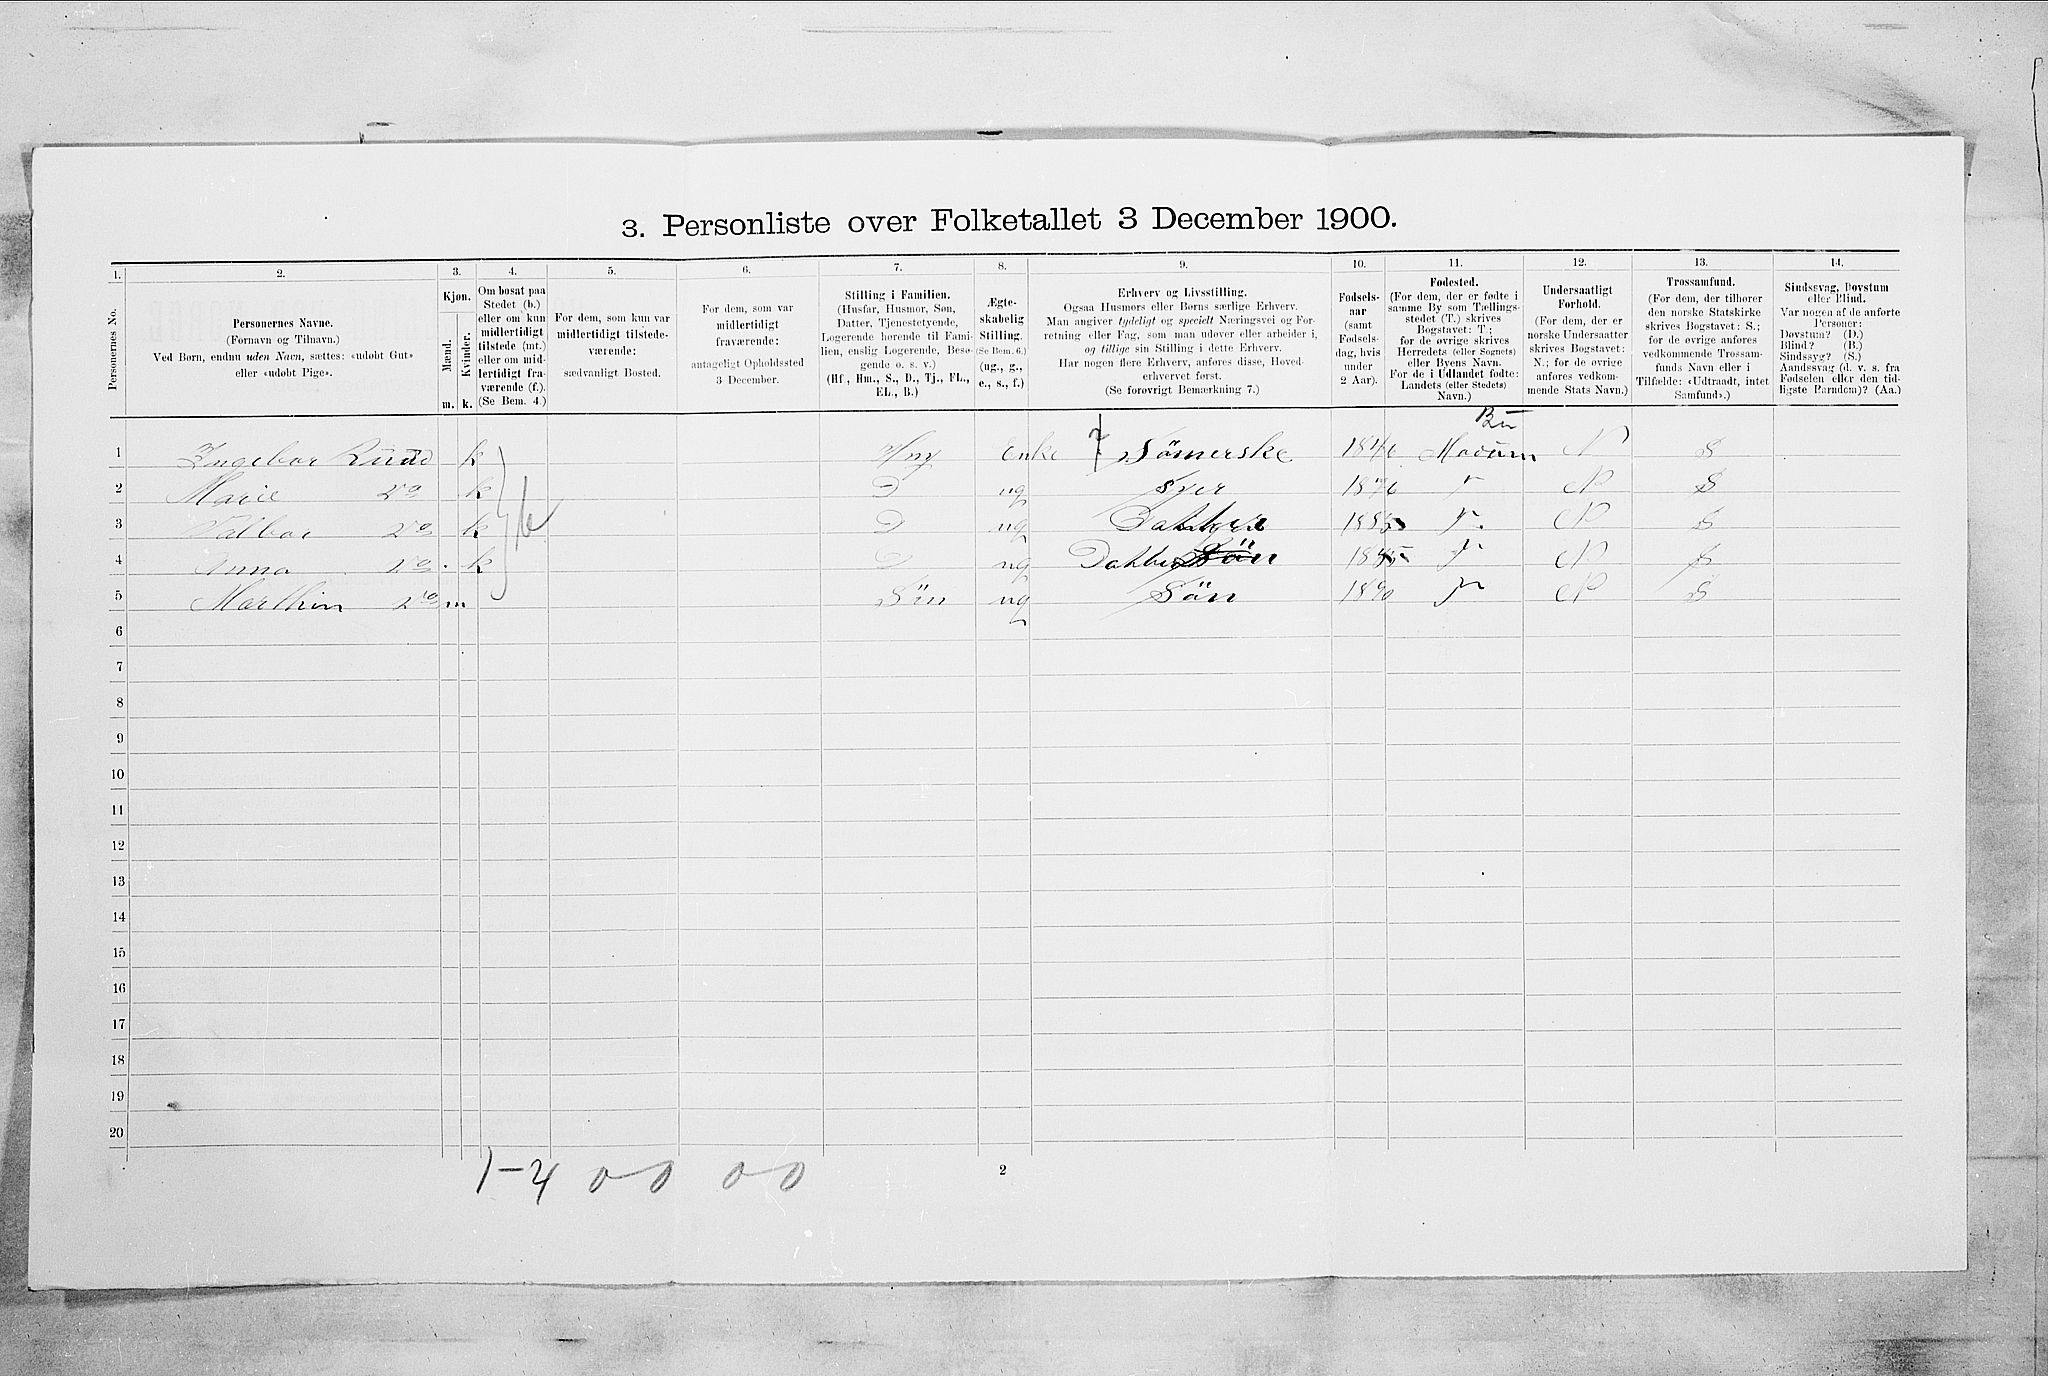 3. Personliste over Folketallet 3 December 1900.
1. 2. 3. 4. 5. 6. 7. 8. 9. 10. 11. 12. 13. 14.
Personernes No.
Personernes Navne.
(Fornavn og Tilnavn.)
Ved Børn, endnu uden Navn, sættes: «udøbt Gut»
eller «udøbt Pige».
Kjøn.
Mænd.
Kvinder.
m. k.
Om bosat paa
Stedet (b.)
eller om kun
midlertidigt
tilstede (mt.)
eller om mid-
lertidigt fra-
værende (f.).
(Se Bem. 4.)
For dem, som kun var
midlertidigt tilstede-
værende:
sædvanligt Bosted.
For dem, som var
midlertidigt
fraværende:
antageligt Opholdssted
3 December.
Stilling i Familien.
(Husfar, Husmor, Søn,
Datter, Tjenestetyende,
Logerende hørende til Fami-
lien, enslig Logerende, Besø-
gende o. s. v.)
(Hf., Hm., S., D., Tj., FL.,
EL., B.)
Ægte-
skabelig
Stilling.
(Se Bem. 6.)
(ug., g.,
e., s., f.)
Erhverv og Livsstilling.
Ogsaa Husmors eller Børns særlige Erhverv.
Man angiver tydeligt og specielt Næringsvei og For-
retning eller Fag, som man udøver eller arbeider i,
og tillige sin Stilling i dette Erhverv.
Har nogen flere Erhverv, anføres disse, Hoved-
erhvervet først.
(Se forøvrigt Bemærkning 7.)
Fødsels-
aar
(samt
Fødsels-
dag, hvis
under
2 Aar).
Fødested.
(For dem, der er fødte i
samme By som Tællings-
stedet (T.) skrives
Bogstavet: T.;
for de øvrige skrives
Herredets (eller Sognets)
eller Byens Navn.
For de i Udlandet fødte:
Landets (eller Stedets)
Navn.)
Undersaatligt
Forhold.
(For dem, der er
norske Undersaatter
skrives Bogstavet:
N.; for de øvrige
anføres vedkom-
mende Stats Navn.)
Trossamfund.
(For dem, der tilhører
den norske Statskirke
skrives Bogstavet: S.;
for de øvrige anføres
vedkommende Trossam-
funds Navn eller i
Tilfælde: «Udtraadt, intet
Samfund».)
Sindssvag, Døvstum
eller Blind.
Var nogen af de anførte
Personer:
Døvstum? (D.)
Blind? (B.)
Sindssyg? (S.)
Aandssvag (d. v. s. fra
Fødselen eller den tid-
ligste Barndom)? (Aa.)
Bu
1 Ingebor Ruud k Enke Sömerske 1846 Modum N S
2 Marie do k D ug Syer 1876 T N S
3 Valbor do k D ug T. N S
4 Anna do k D ug Sön T N S
5 Marthin do m Sön ug Sön 1890 T N S
6
7
8
9
10
11
12
13
14
15
16
17
18
19
20
1-4 0 0 0 0
2